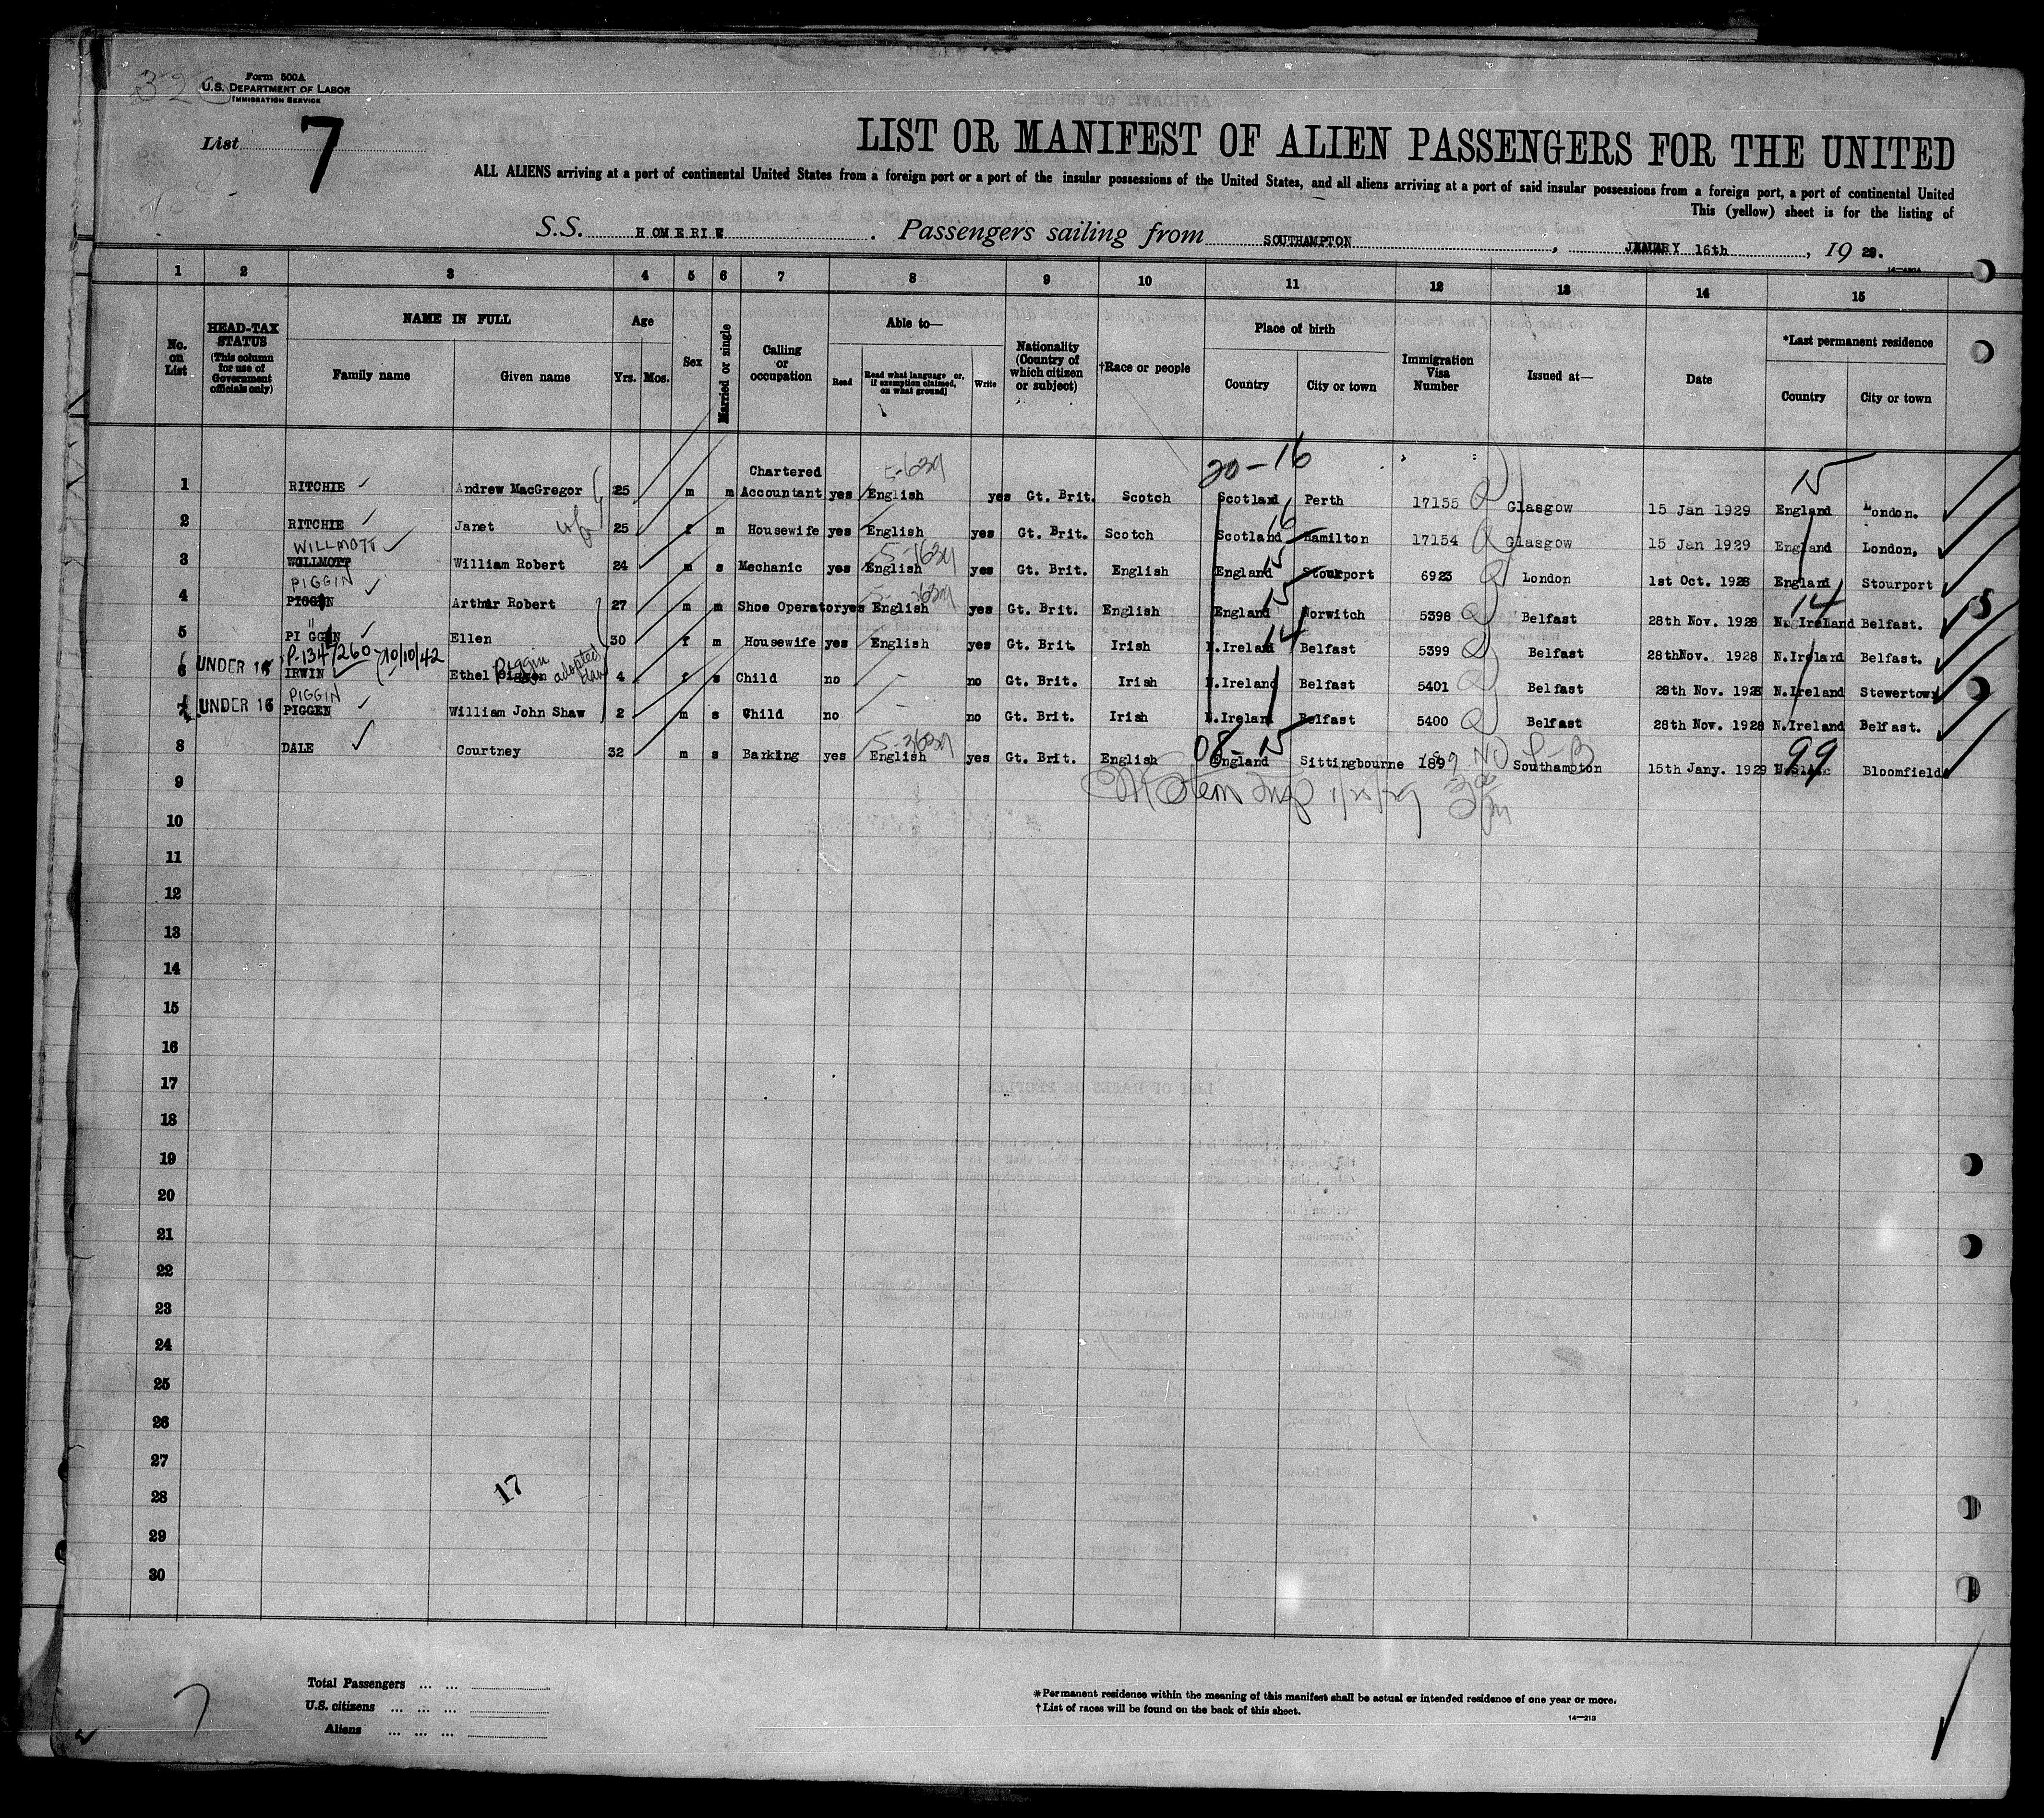 320
Form 500A
U.S. DEPARTMENT OF LABOR
IMMIGRATION SERVICE
List 7
LIST OR MANIFEST OF ALIEN PASSENGERS FOR THE UNITED
ALL ALIENS arriving at a port of continental United States from a foreign port or a port of the insular possessions of the United States, and all aliens arriving at a port of said insular possessions from a foreign port, a port of continental United
This (yellow) sheet is for the listing of
S.S. HOMERIC. Passengers sailing from SOUTHAMPTON, JANUARY 16th, 19 29.
14—480A
1 2 3 4 5 6 7 8 9 10 11 12 13 14 15
No. on List
HEAD-TAX STATUS (This column for use of Government officials only)
NAME IN FULL
Family name Given name
Age
Yrs. Mos.
Sex
Married or single
Calling or occupation
Able to—
Read Read what language or, if exemption claimed, on what ground] Write
Nationality (Country of which citizen or subject)
†Race or people
Place of birth
Country City or town
Immigration Visa Number
Issued at—
Date
*Last permanent residence
Country City or town
20-16 15
1 RITCHIE Andrew MacGregor 25 m m Chartered Accountant yes English yes Gt. Brit. Scotch Scotland Perth 17155 Glasgow 15 Jan 1929 England London.
2 RITCHIE Janet wfe 25 f m Housewife yes English yes Gt. Brit. Scotch Scotland 16 Hamilton 17154 Glasgow 15 Jan 1929 England London,
WILLMOTT
3 WILLMOTT William Robert 24 m s Mechanic yes English yes Gt. Brit. English England 15 Stourport 6923 London 1st Oct. 1928 England Stourport
PIGGIN
4 PIGGIN Arthur Robert 27 m m Shoe Operator yes English yes Gt. Brit. English England 15 Norwitch 5398 Belfast 28th Nov. 1928 N. Ireland 14 Belfast.
"
5 PIGGIN Ellen 30 f m Housewife yes English yes Gt. Brit. Irish N.Ireland 14 Belfast 5399 Belfast 28thNov. 1928 N.Ireland Belfast.
P-134/260 10/10/42
6 UNDER 16 IRWIN Ethel Piggin adopted 4 f s Child no no Gt. Brit. Irish N.Ireland Belfast 5401 Belfast 28th Nov. 1928 N.Ireland Stewertown
PIGGIN
7 UNDER 16 PIGGEN William John Shaw 2 m s Child no no Gt. Brit. Irish N.Ireland Belfast 5400 Belfast 28th Nov. 1928 N.Ireland Belfast.
8 DALE Courtney 32 m s Banking yes English yes Gt. Brit. English England 15 Sittingbourne 1897 Southampton 15th Jany. 1929 99 Bloomfield
9
10
11
12
13
14
15
16
17
18
19
20
21
22
23
24
25
26
27
28
29
30
17
Total Passengers
U.S. citizens
Aliens
7
*Permanent residence within the meaning of this manifest shall be actual or intended residence of one year or more.
†List of races will be found on the back of this sheet.
14—213